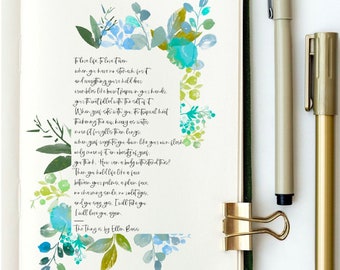 to love life, to love it even
when you have no stomach for it
and everything you've held dear
crumbles like burnt paper in your hands,
your throat filled with the silt of it.
When grief sits with you, its tropical heat
thickening the air, heavy as water
more fit for gills than lungs;
when grief weights you down like your own flesh
only more of it, an obesity of grief,
you think, How can a body withstand this?
Then you hold life like a face
between your palms, a plain face,
no charming smile, no violet eyes,
and you say, yes, I will take you
I will love you, again.
The Thing is by Ellen Bass